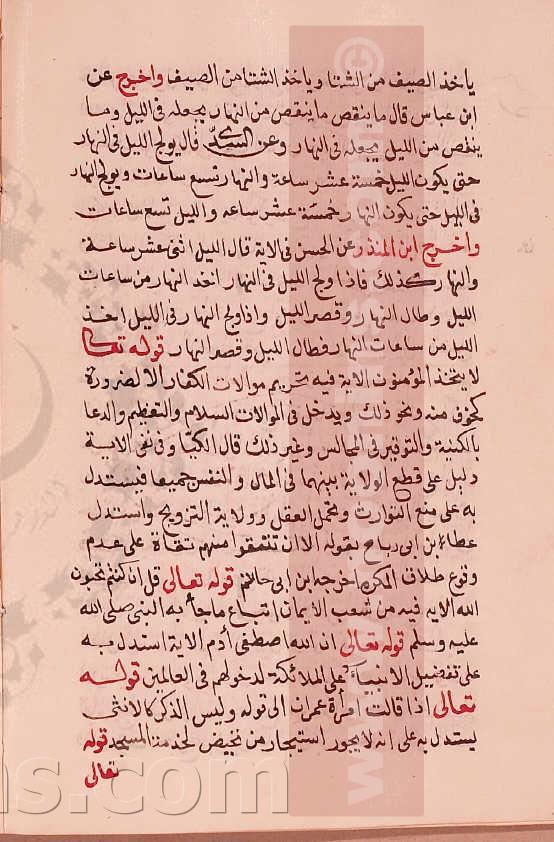 ياخذ الصيف من الشتا وياخذ الشتا من الصيف واخرج عن
ابن عباس قال ما ينقص من النهار يجعله فى الليل وما
ينقص من الليل يجعله فى النهار وعن السدى قال يولج الليل فى النهار
حتى يكون الليل خمسة عشر ساعة والنهار تسع ساعات ويولج النهار
فى الليل حتى يكون النهار خمسة عشر ساعه والليل تسع ساعات
واخرج ابن المنذر عن الحسن فى الاية قال الليل اثنى عشر ساعة
والنهار كذلك فاذا ولج الليل فى النهار اخذ النهار من ساعات
الليل وطال النهار وقصر الليل واذا ولج النهار فى الليل اخذ
الليل من ساعات النهار فطال الليل وقصر النهار قوله تعالى
لا يتخذ المؤمنون الاية فيه تحريم موالات الكفار الا لضرورة
كخوف منه ونحو ذلك ويدخل فى الموالات السلام والتعظيم والدعا
بالكنية والتوقير فى المجالس وغير ذلك قال الكيا وفى نفى الاية
دليل على قطع الولاية بينهما فى المال والنفس جميعا فيستدل
به على منع التوارث وتحمل العقل وولاية التزويج واستدل
عطاء ابن ابى رباح بقوله الا ان تتقوا منهم تقاة على عدم
وقوع طلاق المكره اخرجه ابن ابى حاتم قوله تعالى قل ان كنتم تحبون
الله الايه فيه من شعب الايمان اتباع ما جأ به النبى صلى الله
عليه وسلم قوله تعالى ان الله اصطفى آدم الاية استدل به
على تفضيل الانبياء على الملائكة لدخولهم فى العالمين قوله
تعالى اذا قالت امرأة عمران الى قوله وليس الذكر كالانثى
يستدل به على انه لا يجوز استيجار من تحيض لخدمة المسجد قوله
تعالى
ns.com